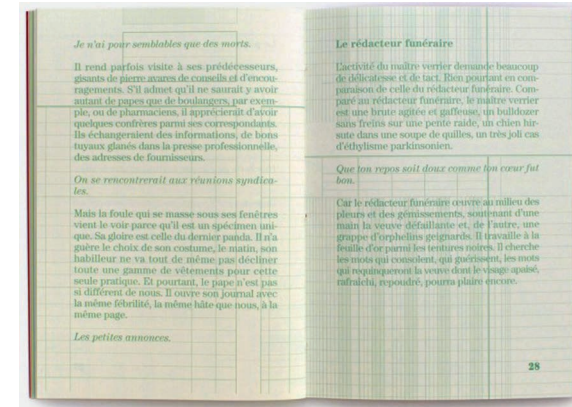 Je n'ai pour semblables que des morts.
Il rend parfois visite à ses prédécesseurs,
gisants de pierre avares de conseils et d'encou-
ragements. S'il admet qu'il ne saurait y avoir
autant de papes que de boulangers, par exem-
ple, ou de pharmaciens, il apprécierait d'avoir
quelques confrères parmi ses correspondants.
Ils échangeraient des informations, de bons
tuyaux glanés dans la presse professionnelle,
des adresses de fournisseurs.
On se rencontrerait aux réunions syndica-
les.
Mais la foule qui se masse sous ses fenêtres
vient le voir parce qu'il est un spécimen uni-
que. Sa gloire est celle du dernier panda. Il n'a
guère le choix de son costume, le matin, son
habilleur ne va tout de même pas décliner
toute une gamme de vêtements pour cette
seule pratique. Et pourtant, le pape n'est pas
si différent de nous. Il ouvre son journal avec
la même fébrilité, la même hâte que nous, à la
même page.
Les petites annonces.
Le rédacteur funéraire
L'activité du maître verrier demande beaucoup
de délicatesse et de tact. Rien pourtant en com-
paraison de celle du rédacteur funéraire. Com-
paré au rédacteur funéraire, le maître verrier
est une brute agitée et gaffeuse, un bulldozer
sans freins sur une pente raide, un chien hir-
sute dans une soupe de quilles, un très joli cas
d'éthylisme parkinsonien.
Que ton repos soit doux comme ton cœur fut
bon.
Car le rédacteur funéraire œuvre au milieu des
pleurs et des gémissements, soutenant d'une
main la veuve défaillante et, de l'autre, une
grappe d'orphelins geignards. Il travaille à la
feuille d'or parmi les tentures noires. Il cherche
les mots qui consolent, qui guérissent, les mots
qui requinqueront la veuve dont le visage apaisé,
rafraîchi, repoudré, pourra plaire encore.
28